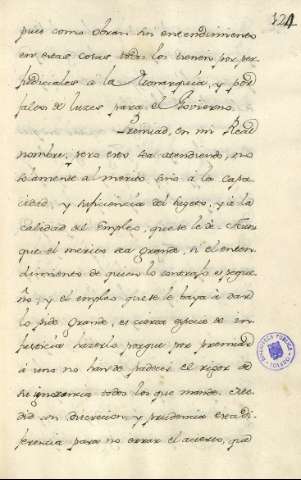 324
pues como obran sin entendimiento
en estas cosas todos los tienen por per
judiciales à la Monarquia, y por
faltos de luzes para el Govierno.
Premiad, en mi Real
nombre, pero esto sea atendiendo, no
solamente al merito sino à la capa
cidad, y suficiencia del sugeto, y à la
calidad del Empleo, que se le dè. Aun
que el merito sea grande, si el enten
dimiento de quien lo contrajo es peque
ño, y el empleo que se le haya à dar
lo pide grande, es cierta especie de in
justicia hazerlo porque por premiar
à uno no han de padecer el rigor de
su ignorancia todos los que mande. Me
did con discrecion, y prudencia esta di
ferencia para no errar el acierto, que
BIBLIOTECA PUBLICA
TOLEDO